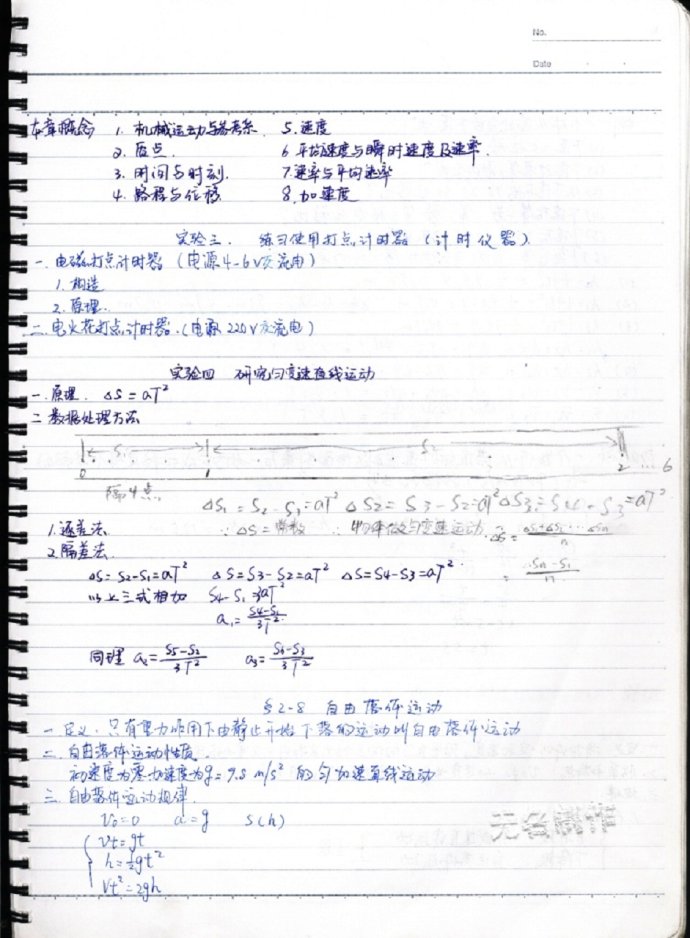 No.
Date
本章概念 1. 机械运动与参考系 5. 速度
2. 质点. 6 平均速度与瞬时速度及速率.
3. 时间与时刻. 7. 速率与平均速率
4. 路程与位移. 8. 加速度
实验三. 练习使用打点计时器 (计时仪器)
一. 电磁打点计时器 (电源4-6V交流电)
1. 构造
2. 原理.
二. 电火花打点计时器. (电源 220V交流电)
实验四 研究匀变速直线运动
一. 原理. △S = aT²
二 数据处理方法
S₁ S₂
0 1 2 ... 6
隔4点
△S₁ = S₂ - S₁ = aT² △S₂ = S₃ - S₂ = aT² △S₃ = S₄ - S₃ = aT²
1. 逐差法 ∵ △S = 常数 ∴ 物体做匀变速运动
2. 隔差法 = Sn - S₁ / n
△S = S₂-S₁ = aT² △S = S₃-S₂ = aT² △S = S₄-S₃ = aT²
以上三式相加 S₄-S₁ = 3aT²
a₁ = S₄-S₁ / 3T²
同理 a₂ = S₅-S₂ / 3T² a₃ = S₆-S₃ / 3T²
§2-8 自由落体运动
一 定义. 只有重力作用下由静止开始下落的运动叫自由落体运动
二. 自由落体运动性质.
初速度为零加速度为g = 9.8 m/s² 的匀加速直线运动
三. 自由落体运动规律.
V₀=0 a=g S(h)
Vt=gt
h=½gt²
Vt²=2gh